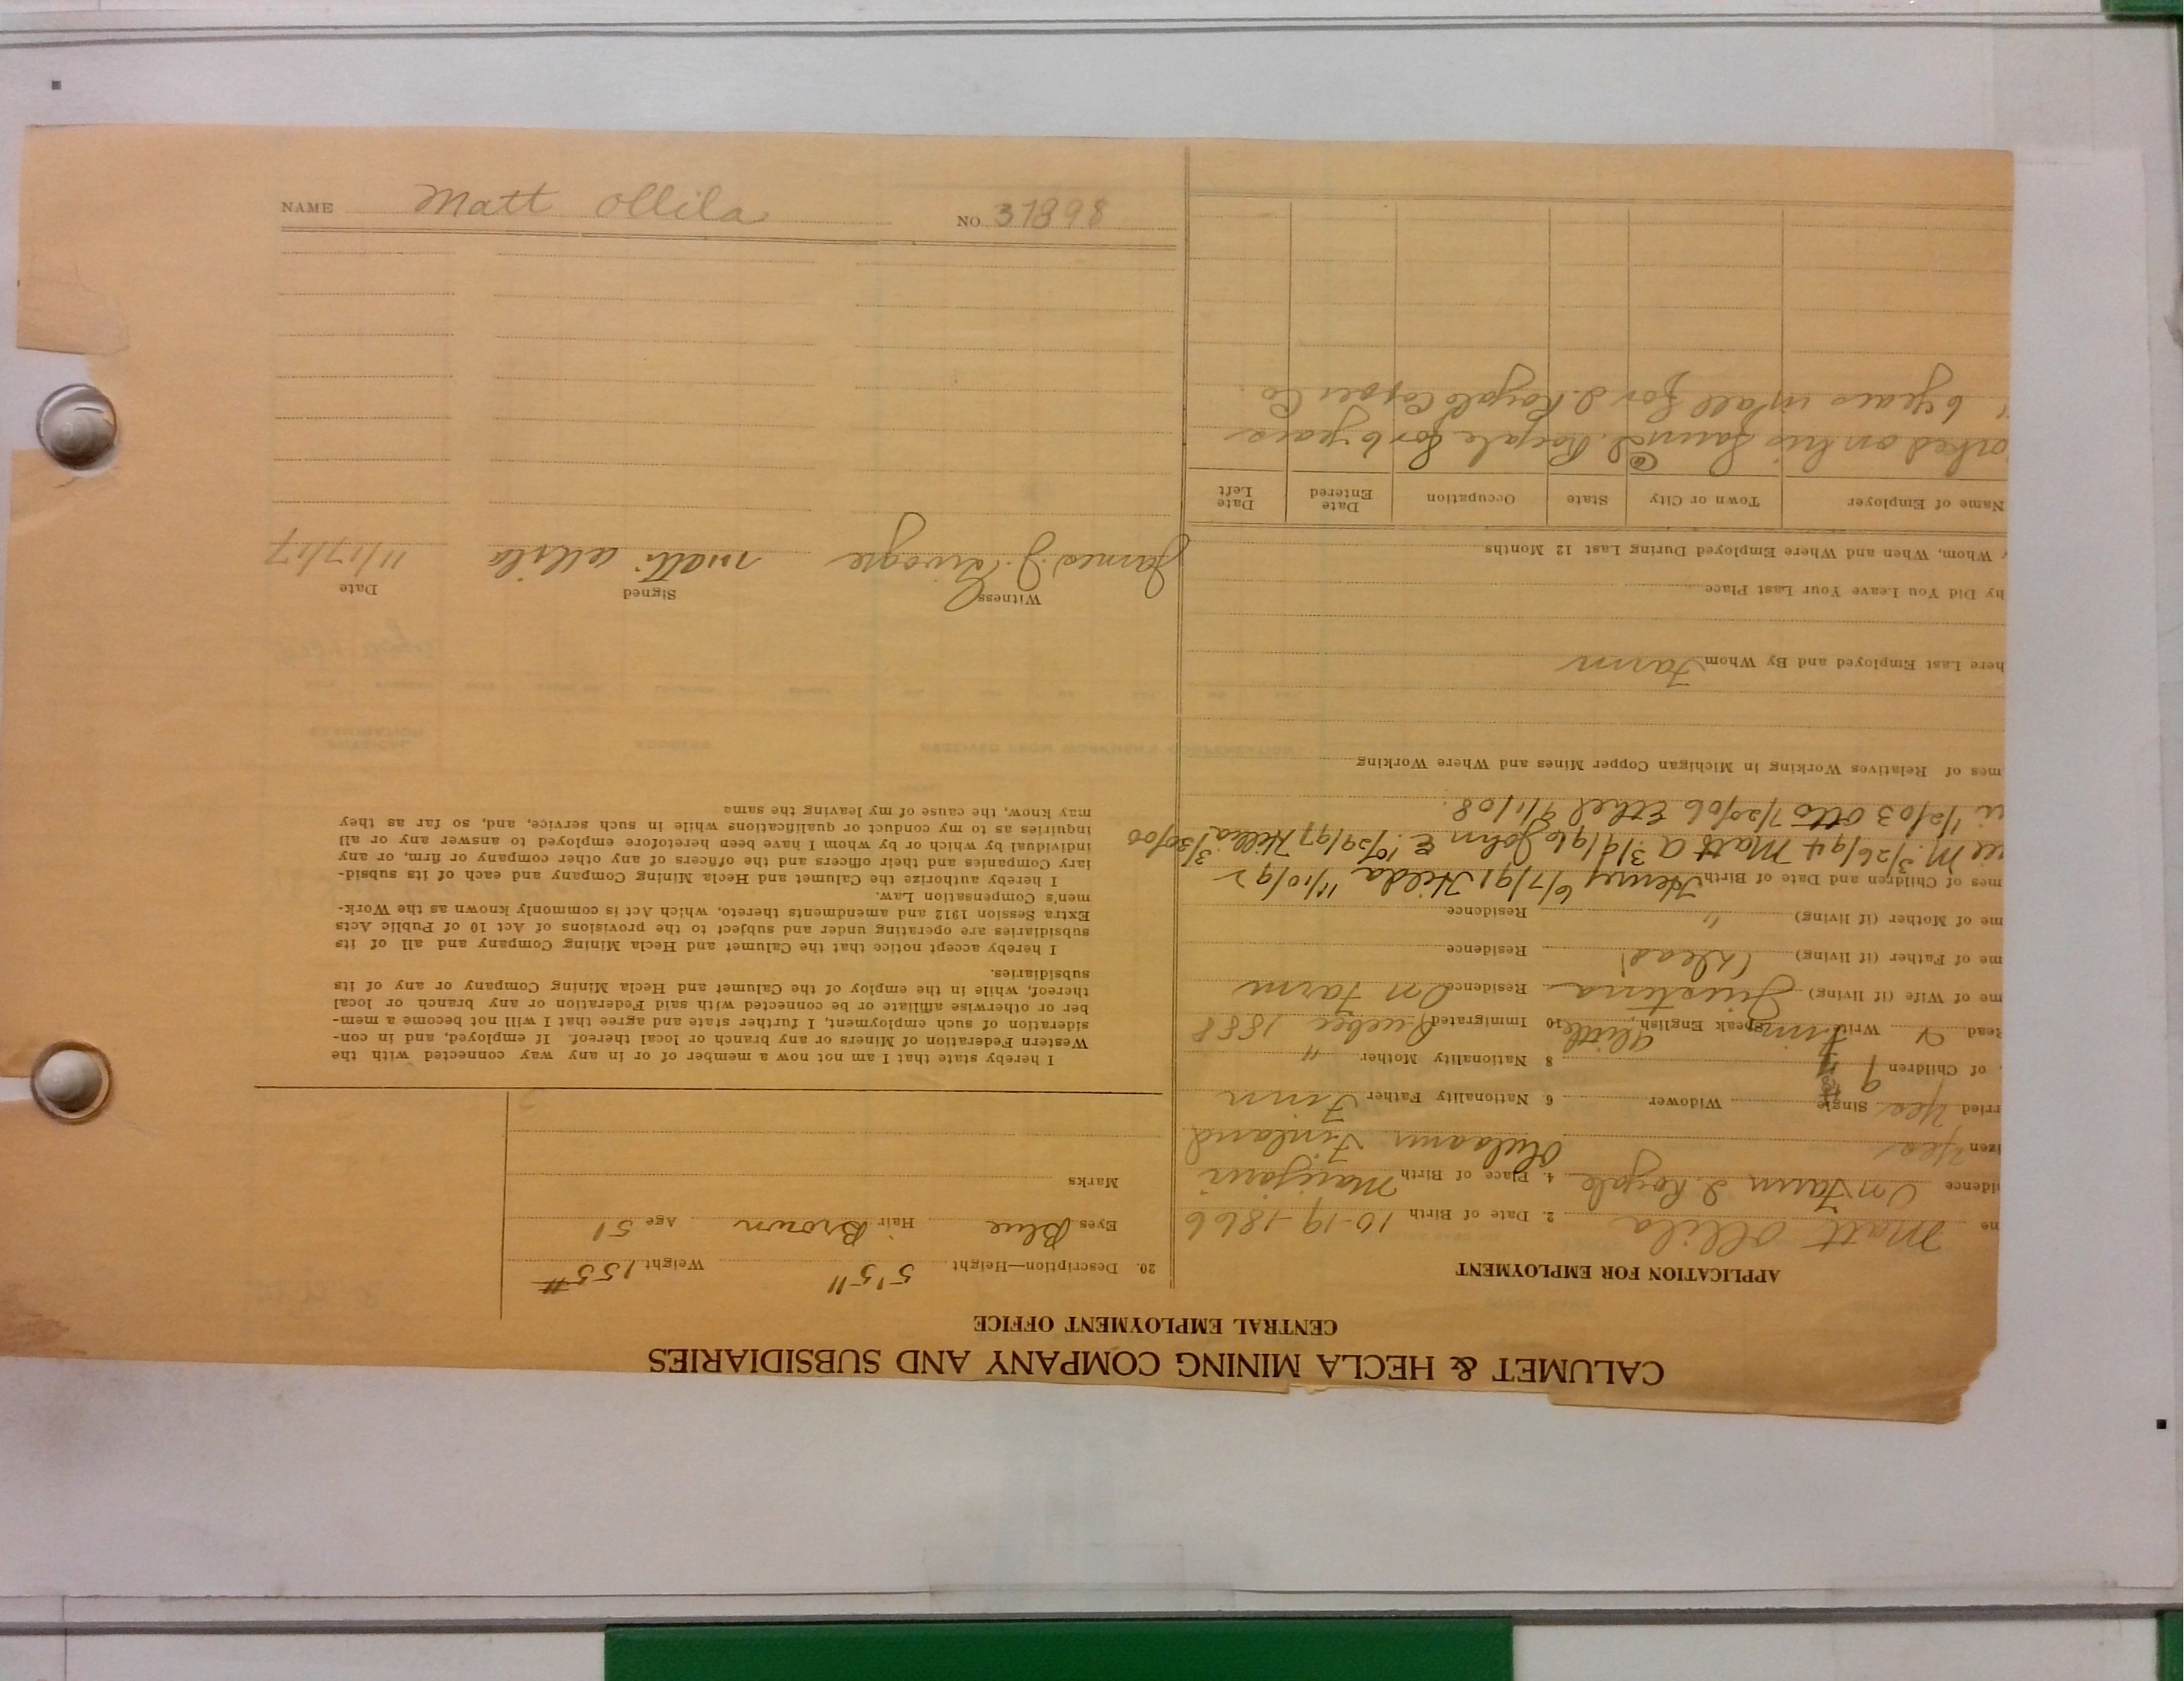 NAME Matt Ollila NO 37898
CALUMET & HECLA MINING COMPANY AND SUBSIDIARIES
CENTRAL EMPLOYMENT OFFICE
APPLICATION FOR EMPLOYMENT
ne Matt Ollila 2. Date of Birth 10-19-1866
idence On Farm I. Royale 4. Place of Birth
izen Yes Finland
rried Yes Single Widower 6 Nationality Father Finn
of Children 9 8 Nationality Mother "
Read Write Speak English, little 10 Immigrated 1888
me of Wife (if living) Residence On Farm
me of Father (if living) (dead) Residence
me of Mother (if living) " Residence
mes of Children and Date of Birth Henry 6/7/91 Hilda 11/10/92
M. 3/26/94 Matt A 3/9/96 John E. 10/29/97 3/30/00
1/2/03 Otto 7/20/06 Ethel 9/1/08.
mes of Relatives Working in Michigan Copper Mines and Where Working
here Last Employed and By Whom Farm
hy Did You Leave Your Last Place
y Whom, When and Where Employed During Last 12 Months
Name of Employer Town or City State Occupation Date Entered Date Left
orked on his farm @ I. Royale for 6 years
6 years in all for I. Royale Copper Co.
20. Description—Height 5'5" Weight 155#
Eyes Blue Hair Brown Age 51
Marks
I hereby state that I am not now a member of or in any way connected with the
Western Federation of Miners or any branch or local thereof. If employed, and in con-
sideration of such employment, I further state and agree that I will not become a mem-
ber or otherwise affiliate or be connected with said Federation or any branch or local
thereof, while in the employ of the Calumet and Hecla Mining Company or any of its
subsidiaries.
I hereby accept notice that the Calumet and Hecla Mining Company and all of its
subsidiaries are operating under and subject to the provisions of Act 10 of Public Acts
Extra Session 1912 and amendments thereto, which Act is commonly known as the Work-
men's Compensation Law.
I hereby authorize the Calumet and Hecla Mining Company and each of its subsid-
iary Companies and their officers and the officers of any other company or firm, or any
individual by which or by whom I have been heretofore employed to answer any or all
inquiries as to my conduct or qualifications while in such service, and, so far as they
may know, the cause of my leaving the same
Witness Signed Date
James J. 11/17/17